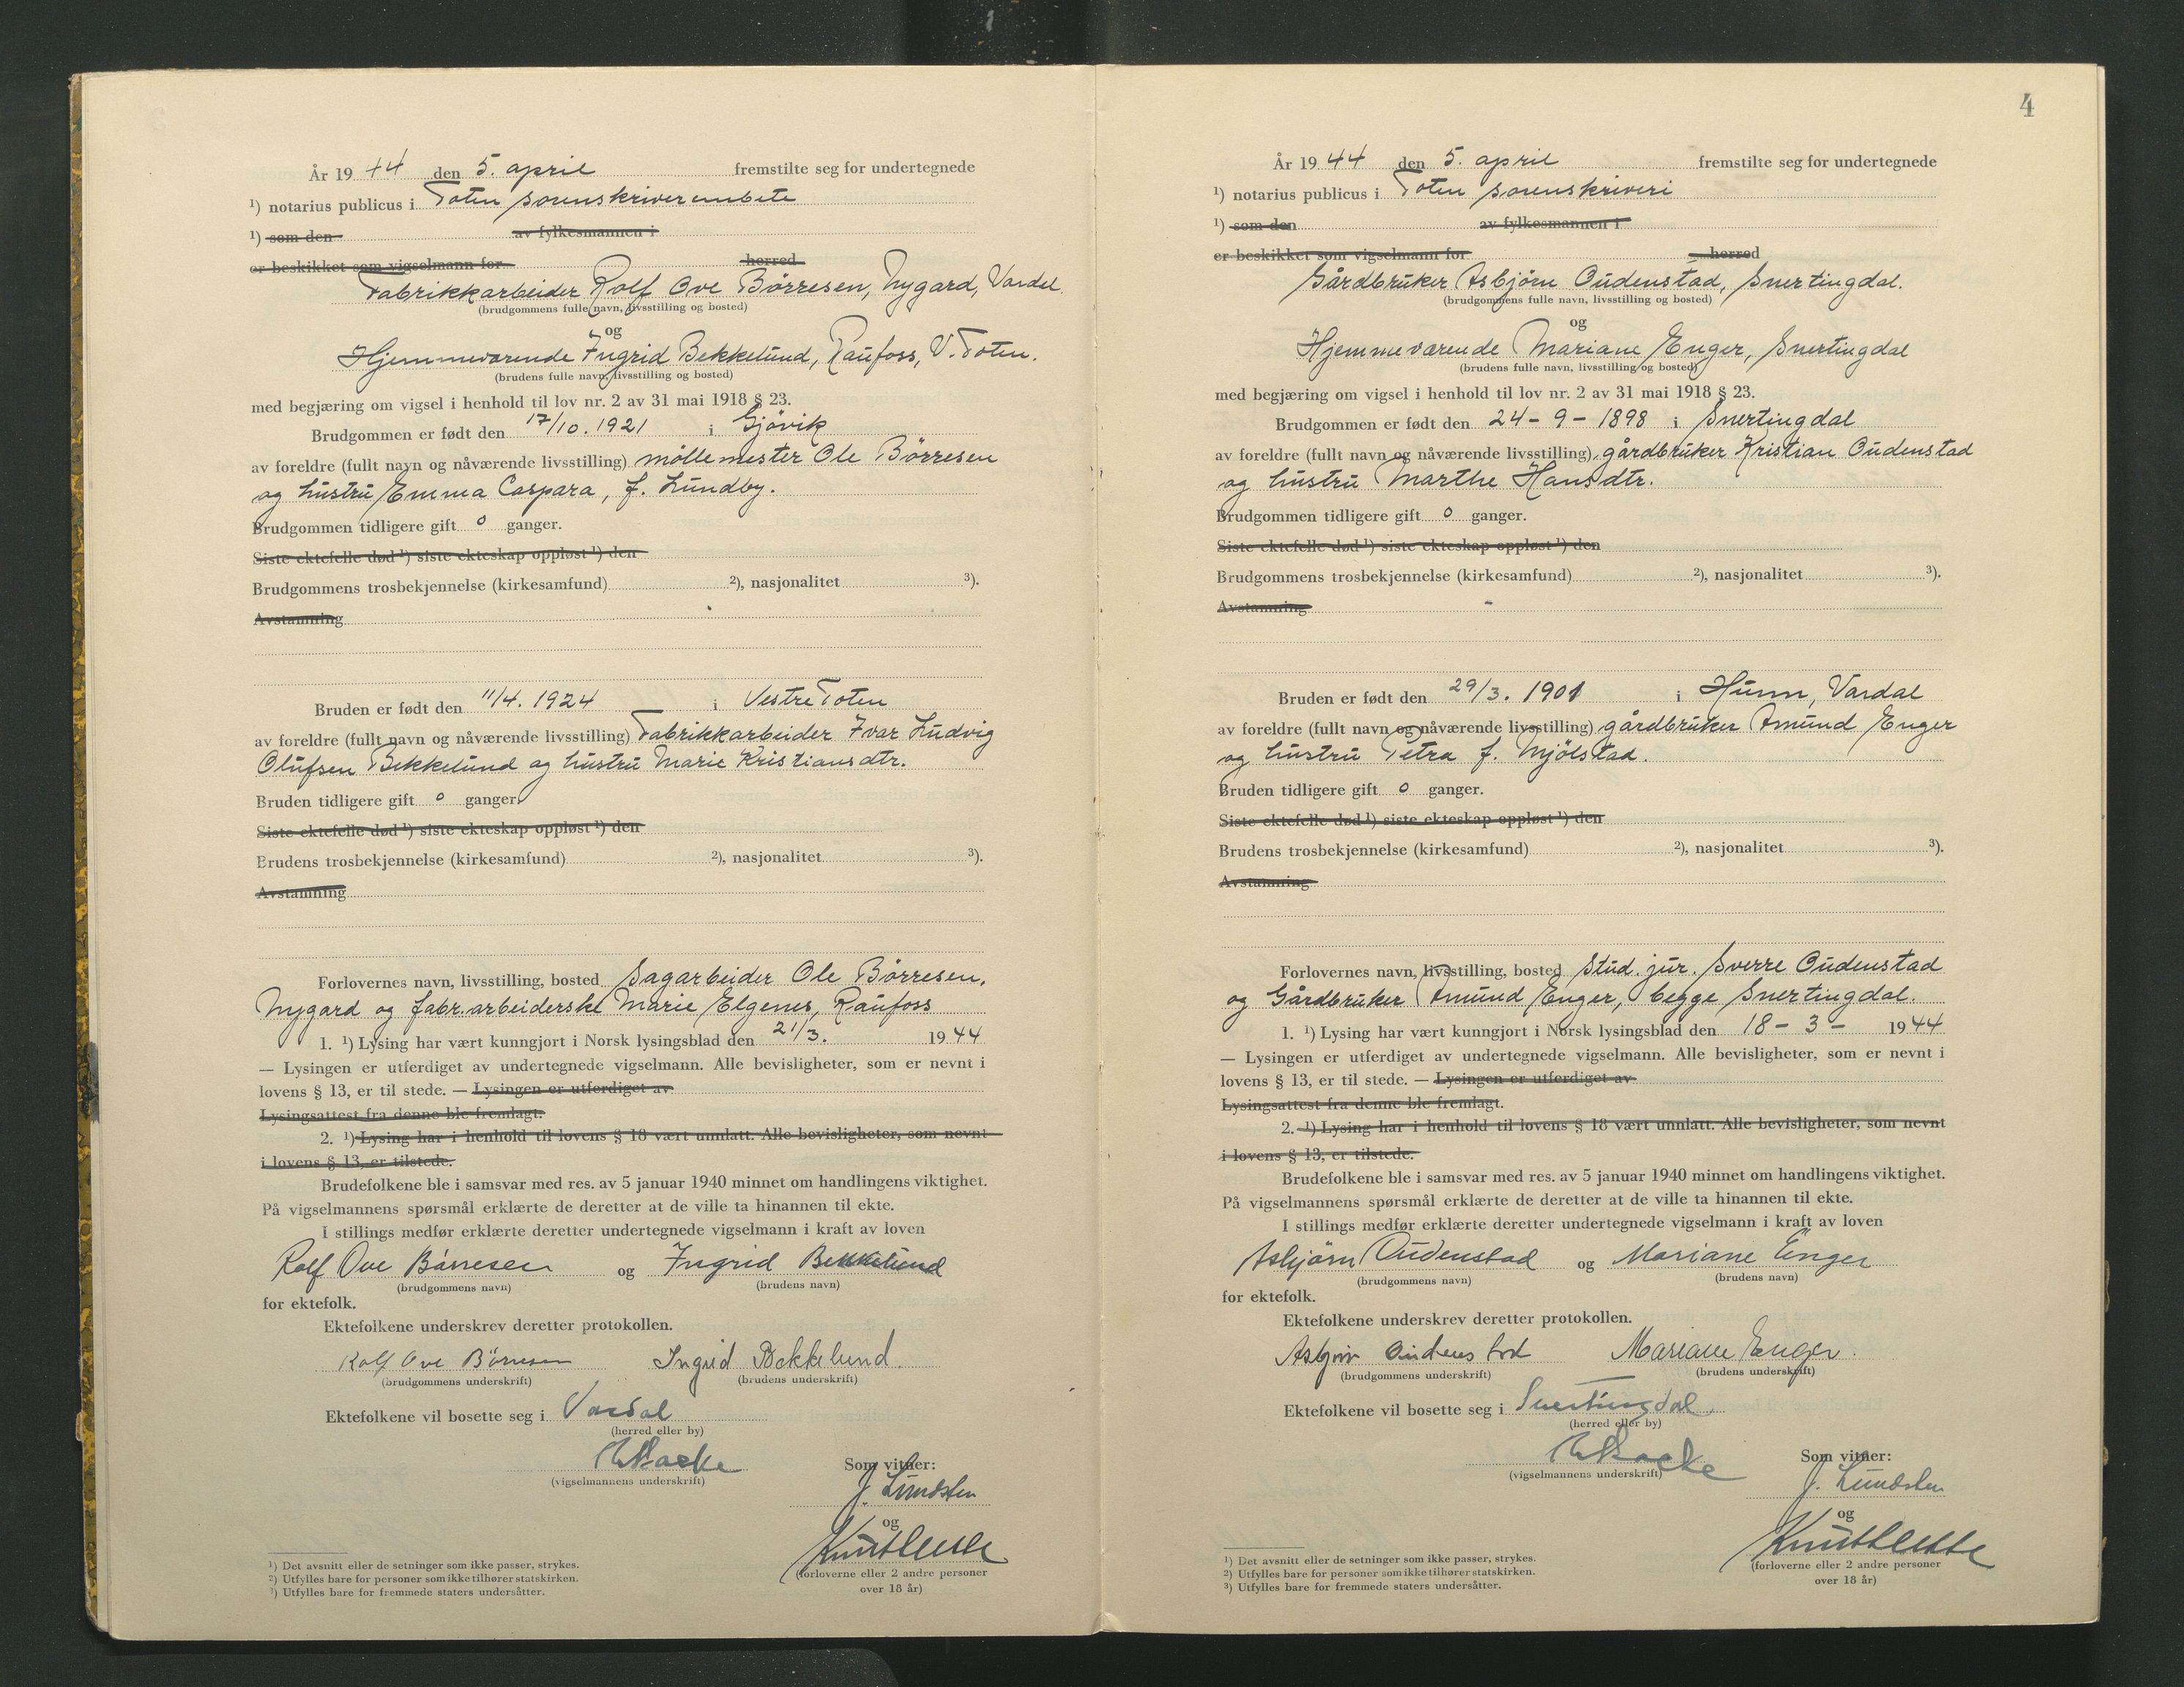 År 1944 den 5. april fremstilte seg for undertegnede
¹) notarius publicus i Toten sorenskriverembete
¹) som den av fylkesmannen i
er beskikket som vigselmann for herred
Fabrikkarbeider Rolf Ove Børresen, Nygard, Vardal.
(brudgommens fulle navn, livsstilling og bosted)
og
Hjemmeværende Ingrid Bekkelund, Raufoss, V. Toten.
(brudens fulle navn, livsstilling og bosted)
med begjæring om vigsel i henhold til lov nr. 2 av 31 mai 1918 § 23.
Brudgommen er født den 17/10. 1921 i Gjøvik
av foreldre (fullt navn og nåværende livsstilling) møllemester Ole Børresen
og hustru Emma Caspara, f. Lundby.
Brudgommen tidligere gift 0 ganger.
Siste ektefelle død ¹) siste ekteskap oppløst ¹) den
Brudgommens trosbekjennelse (kirkesamfund) ²), nasjonalitet ³).
Avstamning
Bruden er født den 11/4. 1924 i Vestre Toten
av foreldre (fullt navn og nåværende livsstilling) Fabrikkarbeider Ivar Ludvig
Olufsen Bekkelund og hustru Marie Kristiansdtr.
Bruden tidligere gift 0 ganger.
Siste ektefelle død ¹) siste ekteskap oppløst ¹) den
Brudens trosbekjennelse (kirkesamfund) ²), nasjonalitet ³).
Avstamning
Forlovernes navn, livsstilling, bosted Sagarbeider Ole Børresen,
Nygard og fabr.arbeiderske Marie Elgenes, Raufoss
1. ¹) Lysing har vært kunngjort i Norsk lysingsblad den 21/3. 1944
— Lysingen er utferdiget av undertegnede vigselmann. Alle bevisligheter, som er nevnt i
lovens § 13, er til stede. — Lysingen er utferdiget av
Lysingsattest fra denne ble fremlagt.
2. ¹) Lysing har i henhold til lovens § 18 vært unnlatt. Alle bevisligheter, som nevnt
i lovens § 13, er tilstede.
Brudefolkene ble i samsvar med res. av 5 januar 1940 minnet om handlingens viktighet.
På vigselmannens spørsmål erklærte de deretter at de ville ta hinannen til ekte.
I stillings medfør erklærte deretter undertegnede vigselmann i kraft av loven
Rolf Ove Børresen og Ingrid Bekkelund
(brudgommens navn) (brudens navn)
for ektefolk.
Ektefolkene underskrev deretter protokollen.
Rolf Ove Børresen Ingrid Bekkelund.
(brudgommens underskrift) (brudens underskrift)
Ektefolkene vil bosette seg i Vardal
(herred eller by)
(vigselmannens underskrift)
Som vitner:
J. Lundsten
og
Knut
(forloverne eller 2 andre personer
over 18 år)
¹) Det avsnitt eller de setninger som ikke passer, strykes.
²) Utfylles bare for personer som ikke tilhører statskirken.
³) Utfylles bare for fremmede staters undersåtter.
4
År 1944 den 5. april fremstilte seg for undertegnede
¹) notarius publicus i Toten sorenskriveri
¹) som den av fylkesmannen i
er beskikket som vigselmann for herred
Gårdbruker Asbjørn Oudenstad, Snertingdal.
(brudgommens fulle navn, livsstilling og bosted)
og
Hjemmeværende Mariane Enger, Snertingdal
(brudens fulle navn, livsstilling og bosted)
med begjæring om vigsel i henhold til lov nr. 2 av 31 mai 1918 § 23.
Brudgommen er født den 24 - 9 - 1898 i Snertingdal
av foreldre (fullt navn og nåværende livsstilling) gårdbruker Kristian Oudenstad
og hustru Marthe Hansdtr.
Brudgommen tidligere gift 0 ganger.
Siste ektefelle død ¹) siste ekteskap oppløst ¹) den
Brudgommens trosbekjennelse (kirkesamfund) ²), nasjonalitet ³).
Avstamning
Bruden er født den 29/3. 1901 i Hunn, Vardal
av foreldre (fullt navn og nåværende livsstilling) gårdbruker Amund Enger
og hustru Petra f. Mjølstad.
Bruden tidligere gift 0 ganger.
Siste ektefelle død ¹) siste ekteskap oppløst ¹) den
Brudens trosbekjennelse (kirkesamfund) ²), nasjonalitet ³).
Avstamning
Forlovernes navn, livsstilling, bosted Stud. jur. Sverre Oudenstad
og Gårdbruker Amund Enger, begge Snertingdal.
1. ¹) Lysing har vært kunngjort i Norsk lysingsblad den 18 - 3 - 1944
— Lysingen er utferdiget av undertegnede vigselmann. Alle bevisligheter, som er nevnt i
lovens § 13, er til stede. — Lysingen er utferdiget av
Lysingsattest fra denne ble fremlagt.
2. ¹) Lysing har i henhold til lovens § 18 vært unnlatt. Alle bevisligheter, som nevnt
i lovens § 13, er tilstede.
Brudefolkene ble i samsvar med res. av 5 januar 1940 minnet om handlingens viktighet.
På vigselmannens spørsmål erklærte de deretter at de ville ta hinannen til ekte.
I stillings medfør erklærte deretter undertegnede vigselmann i kraft av loven
Asbjørn Oudenstad og Mariane Enger
(brudgommens navn) (brudens navn)
for ektefolk.
Ektefolkene underskrev deretter protokollen.
Asbjørn Oudenstad Mariane Enger.
(brudgommens underskrift) (brudens underskrift)
Ektefolkene vil bosette seg i Snertingdal
(herred eller by)
(vigselmannens underskrift)
Som vitner:
J. Lundsten
og
Knut
(forloverne eller 2 andre personer
over 18 år)
¹) Det avsnitt eller de setninger som ikke passer, strykes.
²) Utfylles bare for personer som ikke tilhører statskirken.
³) Utfylles bare for fremmede staters undersåtter.